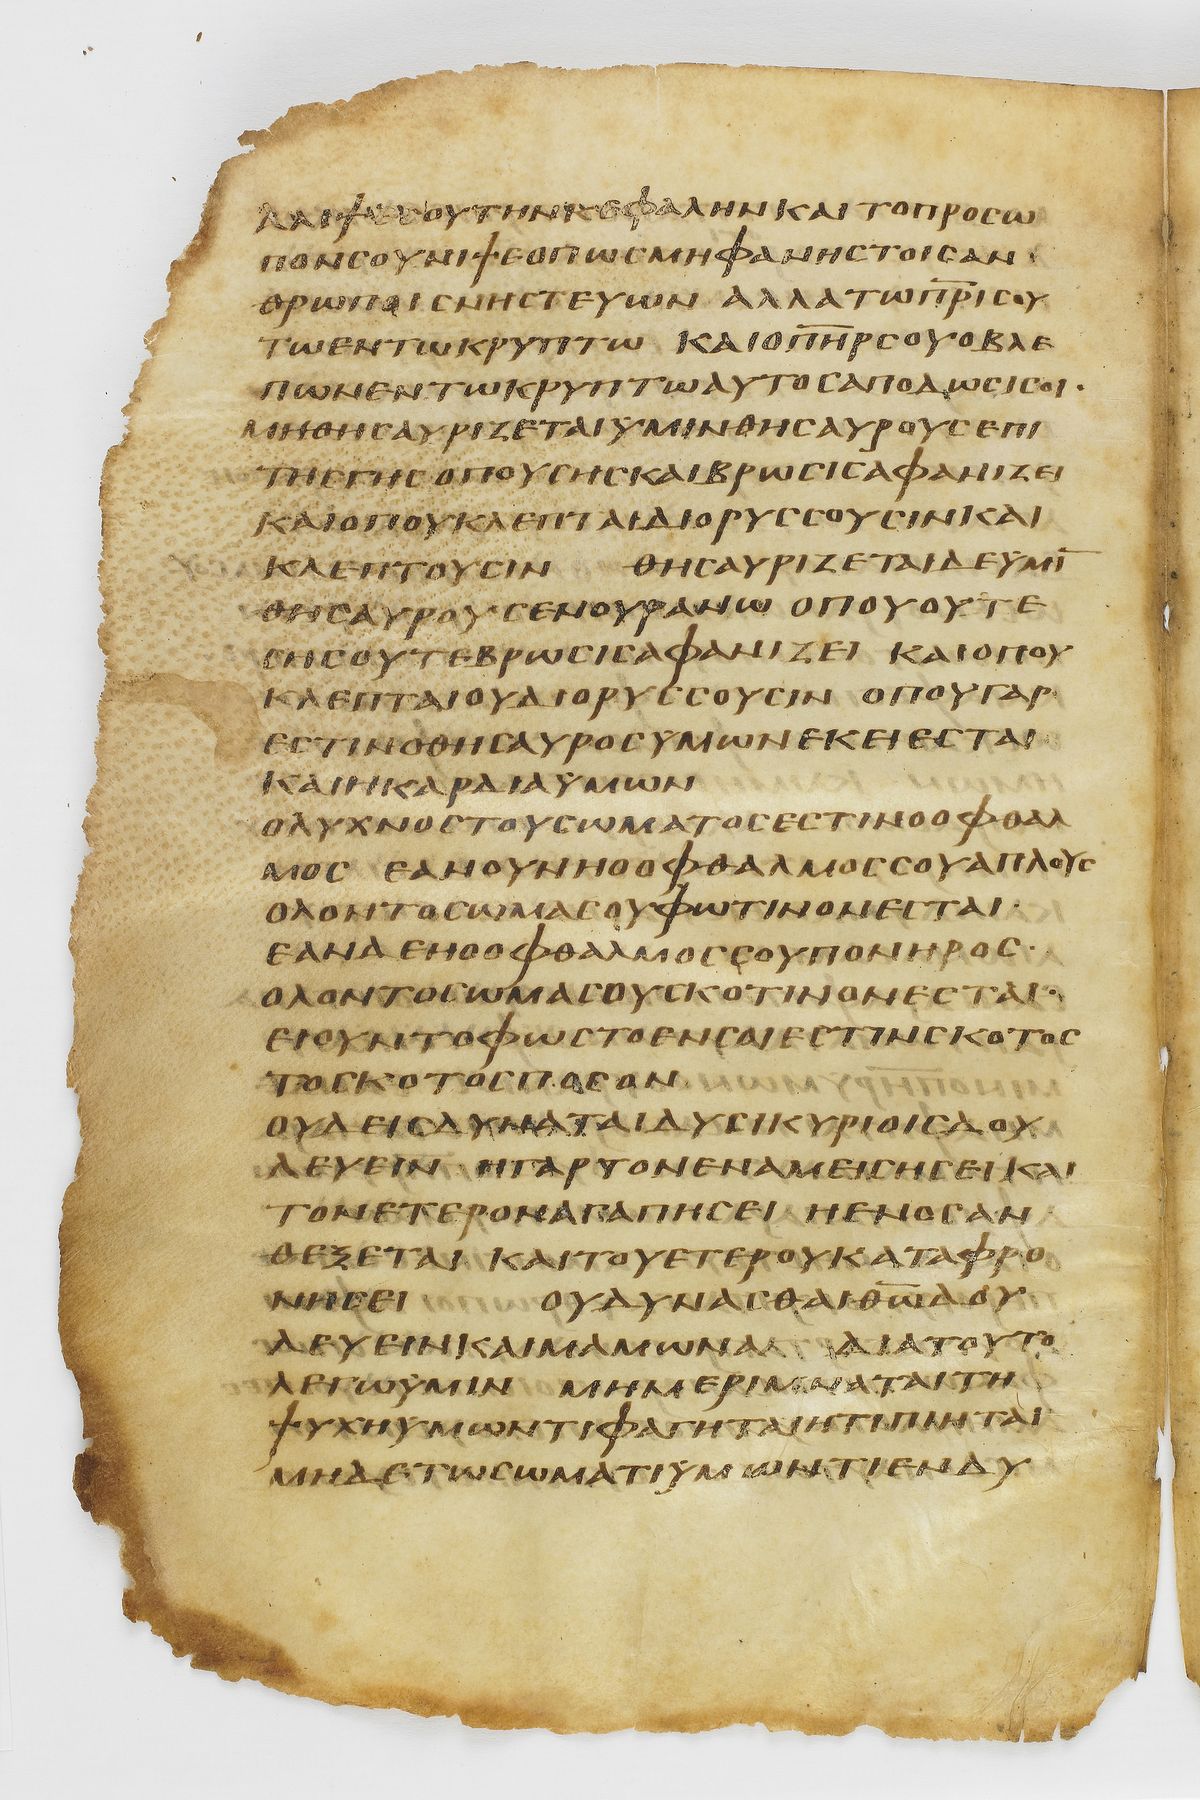 ΛΑΙΨΕϹΟΥΤΗΝΚΕΦΑΛΗΝΚΑΙΤΟΠΡΟϹΩ
ΠΟΝϹΟΥΝΙΨΕΟΠΩϹΜΗΦΑΝΗϹΤΟΙϹΑΝ
ΘΡΩΠΟΙϹΝΗϹΤΕΥΩΝ ΑΛΛΑΤΩΠΡΙϹΟΥ
ΤΩΕΝΤΩΚΡΥΠΤΩ ΚΑΙΟΠΗΡϹΟΥΟΒΛΕ
ΠΩΝΕΝΤΩΚΡΥΠΤΩΑΥΤΟϹΑΠΟΔΩϹΙϹΟΙ·
ΜΗΘΗϹΑΥΡΙΖΕΤΑΙΥΜΙΝΘΗϹΑΥΡΟΥϹΕΠΙ
ΤΗϹΓΗϹΟΠΟΥϹΗϹΚΑΙΒΡΩϹΙϹΑΦΑΝΙΖΕΙ
ΚΑΙΟΠΟΥΚΛΕΠΤΑΙΔΙΟΡΥϹϹΟΥϹΙΝΚΑΙ
ΚΛΕΠΤΟΥϹΙΝ ΘΗϹΑΥΡΙΖΕΤΑΙΔΕΥΜΙ̅
ΘΗϹΑΥΡΟΥϹΕΝΟΥΡΑΝΩ ΟΠΟΥΟΥΤΕ
ϹΗϹΟΥΤΕΒΡΩϹΙϹΑΦΑΝΙΖΕΙ ΚΑΙΟΠΟΥ
ΚΛΕΠΤΑΙΟΥΔΙΟΡΥϹϹΟΥϹΙΝ ΟΠΟΥΓΑΡ
ΕϹΤΙΝΟΘΗϹΑΥΡΟϹΥΜΩΝΕΚΕΙΕϹΤΑΙ
ΚΑΙΗΚΑΡΔΙΑΥΜΩΝ
ΟΛΥΧΝΟϹΤΟΥϹΩΜΑΤΟϹΕϹΤΙΝΟΟΦΘΑΛ
ΜΟϹ ΕΑΝΟΥΝΗΟΟΦΘΑΛΜΟϹϹΟΥΑΠΛΟΥϹ
ΟΛΟΝΤΟϹΩΜΑϹΟΥΦΩΤΙΝΟΝΕϹΤΑΙ·
ΕΑΝΔΕΗΟΟΦΘΑΛΜΟϹϹΟΥΠΟΝΗΡΟϹ·
ΟΛΟΝΤΟϹΩΜΑϹΟΥϹΚΟΤΙΝΟΝΕϹΤΑΙ·
ΕΙΟΥΝΤΟΦΩϹΤΟΕΝϹΟΙΕϹΤΙΝϹΚΟΤΟϹ
ΤΟϹΚΟΤΟϹΠΟϹΟΝ
ΟΥΔΕΙϹΔΥΝΑΤΑΙΔΥϹΙΚΥΡΙΟΙϹΔΟΥ
ΛΕΥΕΙΝ ΗΓΑΡΤΟΝΕΝΑΜΕΙϹΗϹΕΙΚΑΙ
ΤΟΝΕΤΕΡΟΝΑΓΑΠΗϹΕΙ ΗΕΝΟϹΑΝ
ΘΕΞΕΤΑΙ ΚΑΙΤΟΥΕΤΕΡΟΥΚΑΤΑΦΡΟ
ΝΗϹΕΙ ΟΥΔΥΝΑϹΘΑΙΘΩ̅ΔΟΥ
ΛΕΥΕΙΝΚΑΙΜΑΜΩΝΑ ΔΙΑΤΟΥΤΟ
ΛΕΓΩΥΜΙΝ ΜΗΜΕΡΙΜΝΑΤΑΙΤΗ
ΨΥΧΗΥΜΩΝΤΙΦΑΓΗΤΑΙΗΤΙΠΙΗΤΑΙ
ΜΗΔΕΤΩϹΩΜΑΤΙΥΜΩΝΤΙΕΝΔΥ